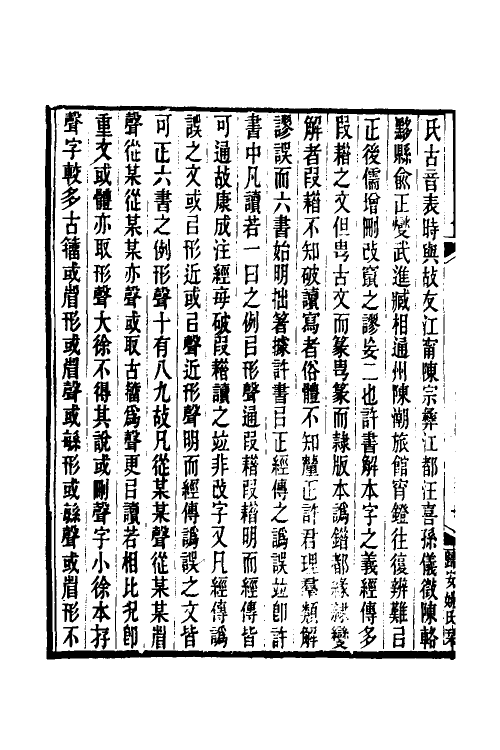 氏古音表時與故友江甯陳宗彝江都汪喜孫儀徵陳輅
黟縣俞正燮武進臧相通州陳潮旅館宵鐙往復辨難㠯
正後儒增刪改竄之謬妄二也許書解本字之義經傳多
叚藉之文但粤古文而篆粤篆而隸版本譌錯都緣隸變
解者叚藉不知破讀寫者俗體不知釐正許君理羣類解
謬誤而六書始明拙箸據許書㠯正經傳之譌誤竝卽許
書中凡讀若一曰之例㠯形聲通叚藉叚藉明而經傳皆
可通故康成注經每破叚藉讀之竝非改字又凡經傳譌
誤之文或㠯形近或㠯聲近形聲明而經傳譌誤之文皆
可正六書之例形聲十有八九故凡從某某聲從某某省
聲從某從某某亦聲或取古籒爲聲更㠯讀若相比況卽
重文或體亦取形聲大徐不得其說或刪聲字小徐本存
聲字較多古籒或省形或省聲或緐形或緐聲或省形不
歸安姚氏栞